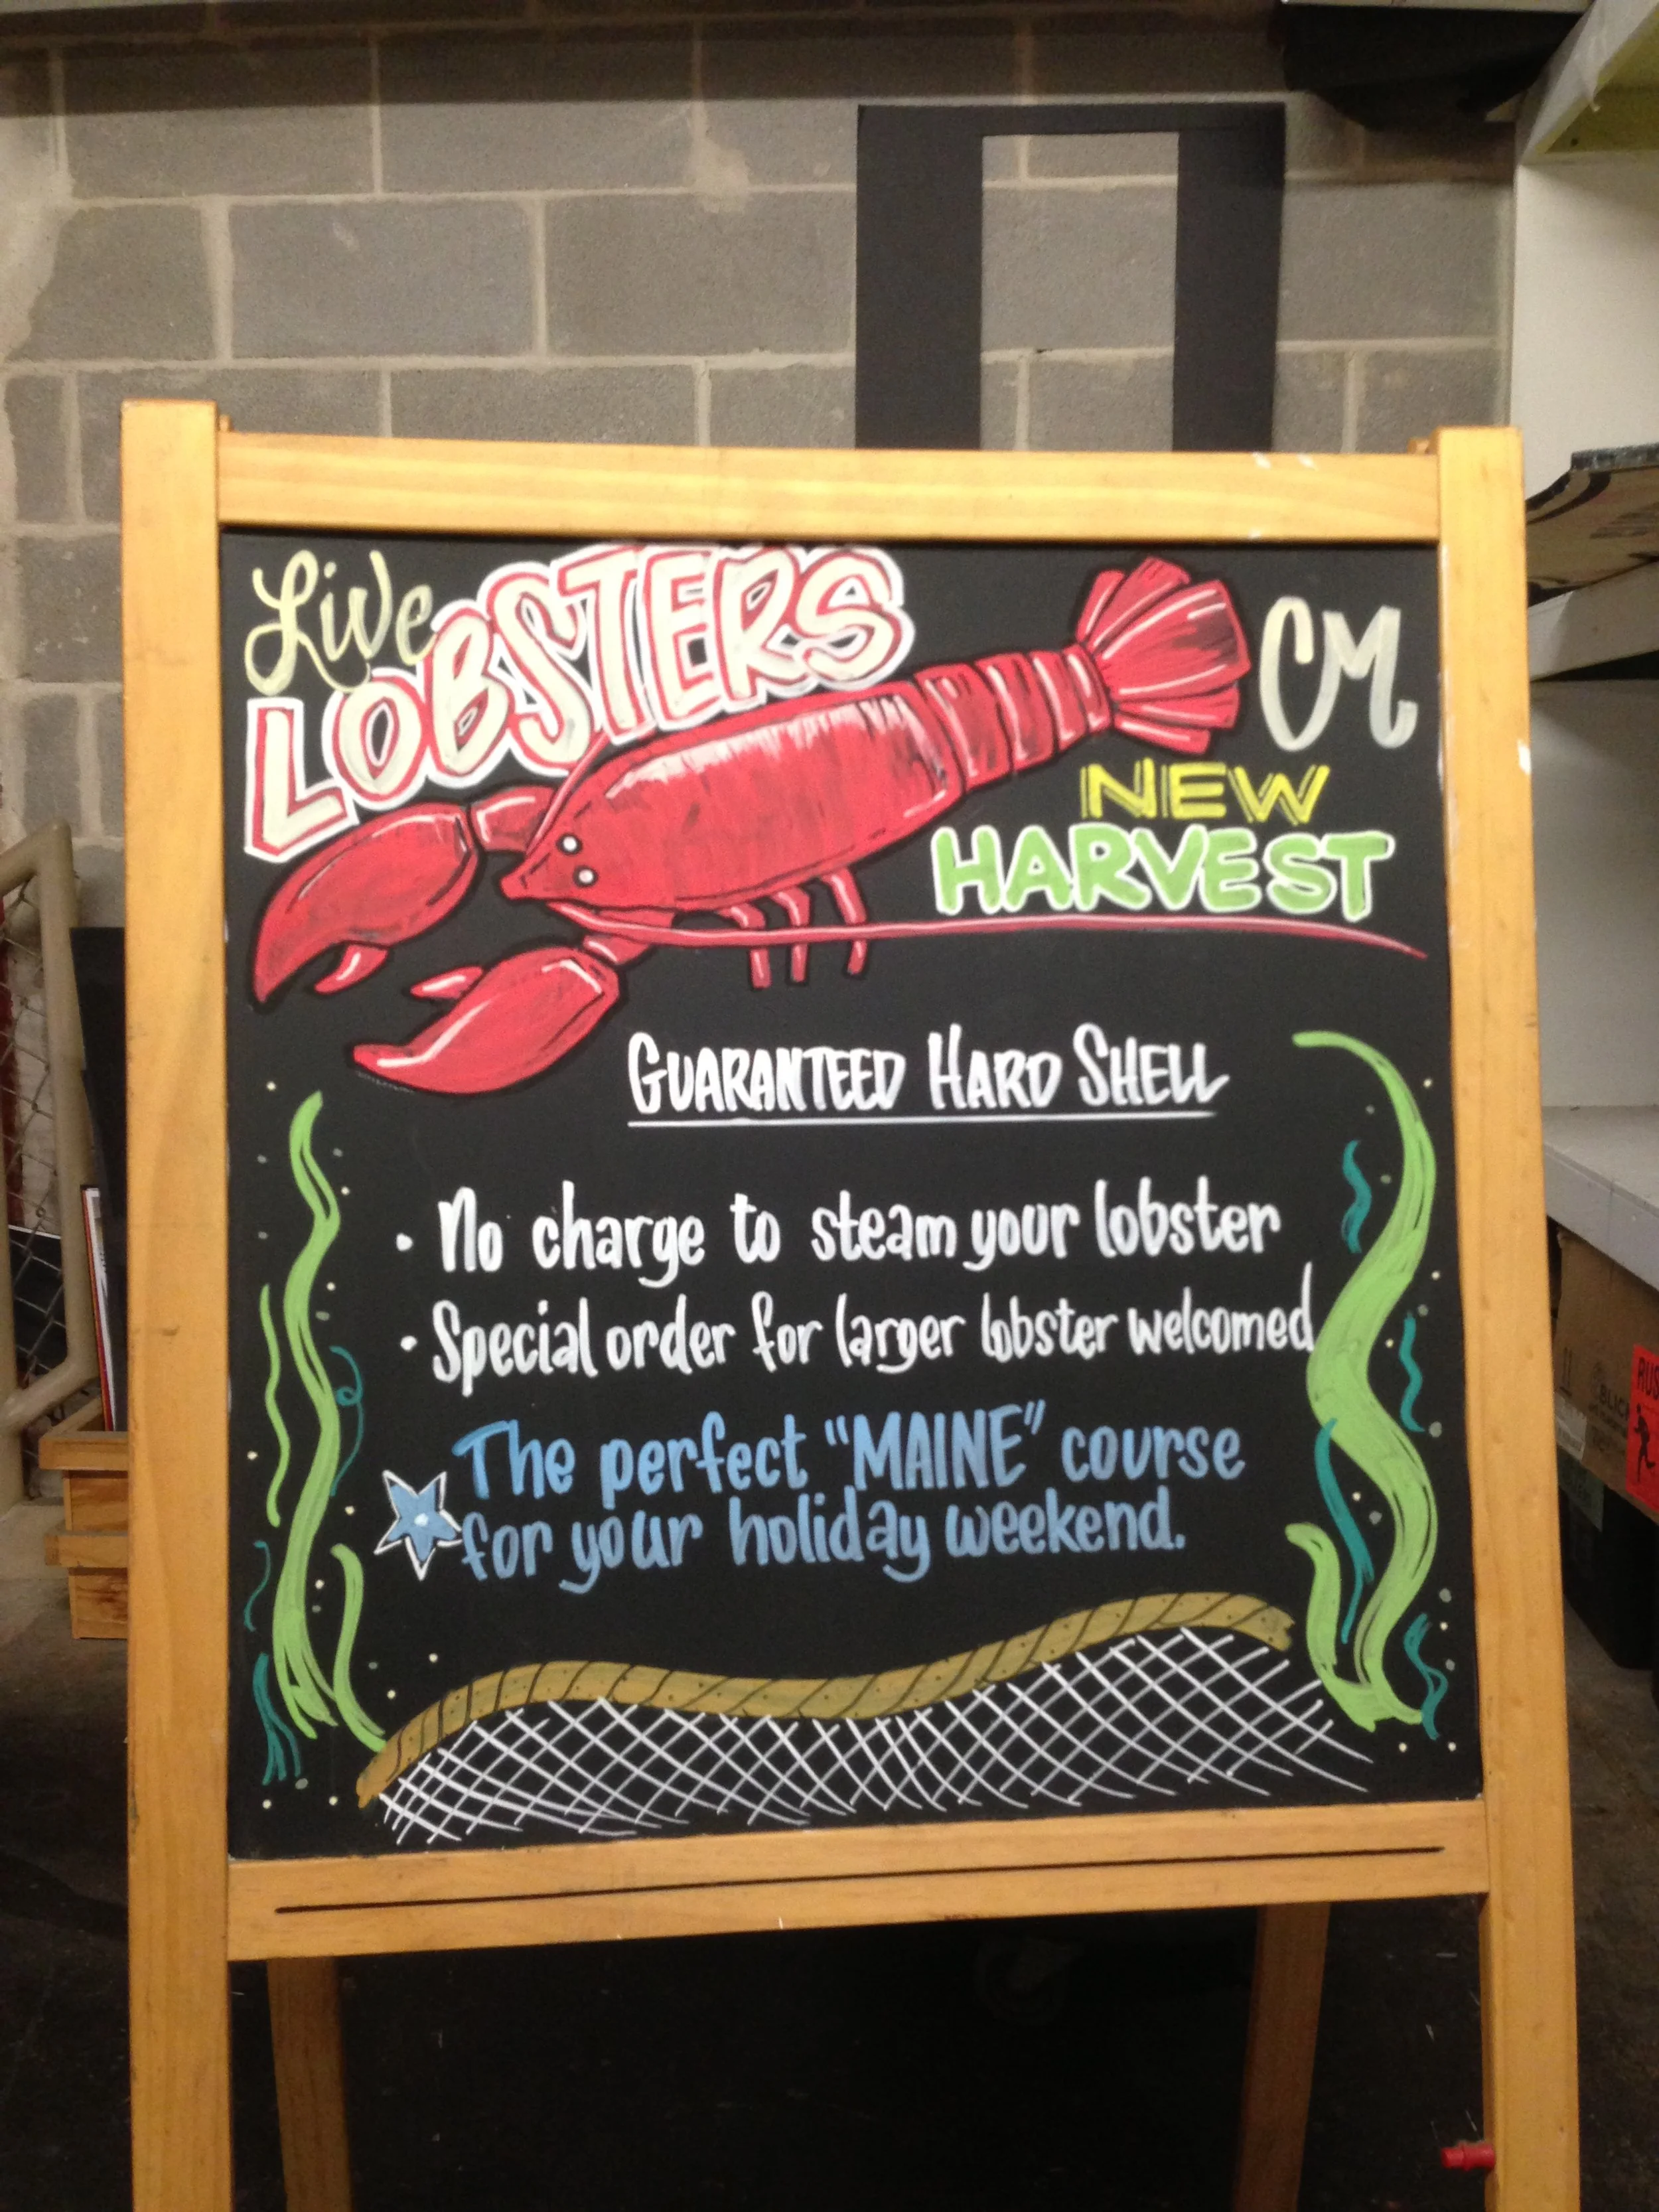 Live
LOBSTERS
CM
NEW
HARVEST
GUARANTEED HARD SHELL
• No charge to steam your lobster
• Special order for larger lobster welcomed
The perfect "MAINE" course
for your holiday weekend.